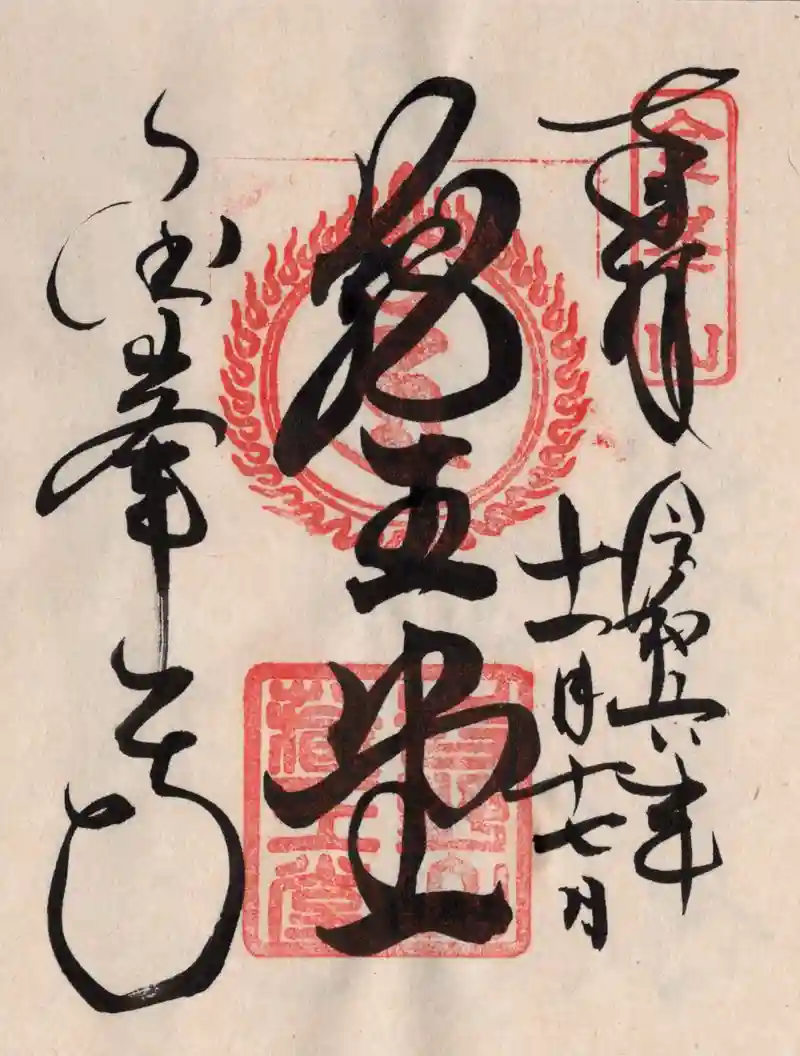 金峯山
奉拝
令和六年
十一月十七日
蔵王堂
金峯山寺